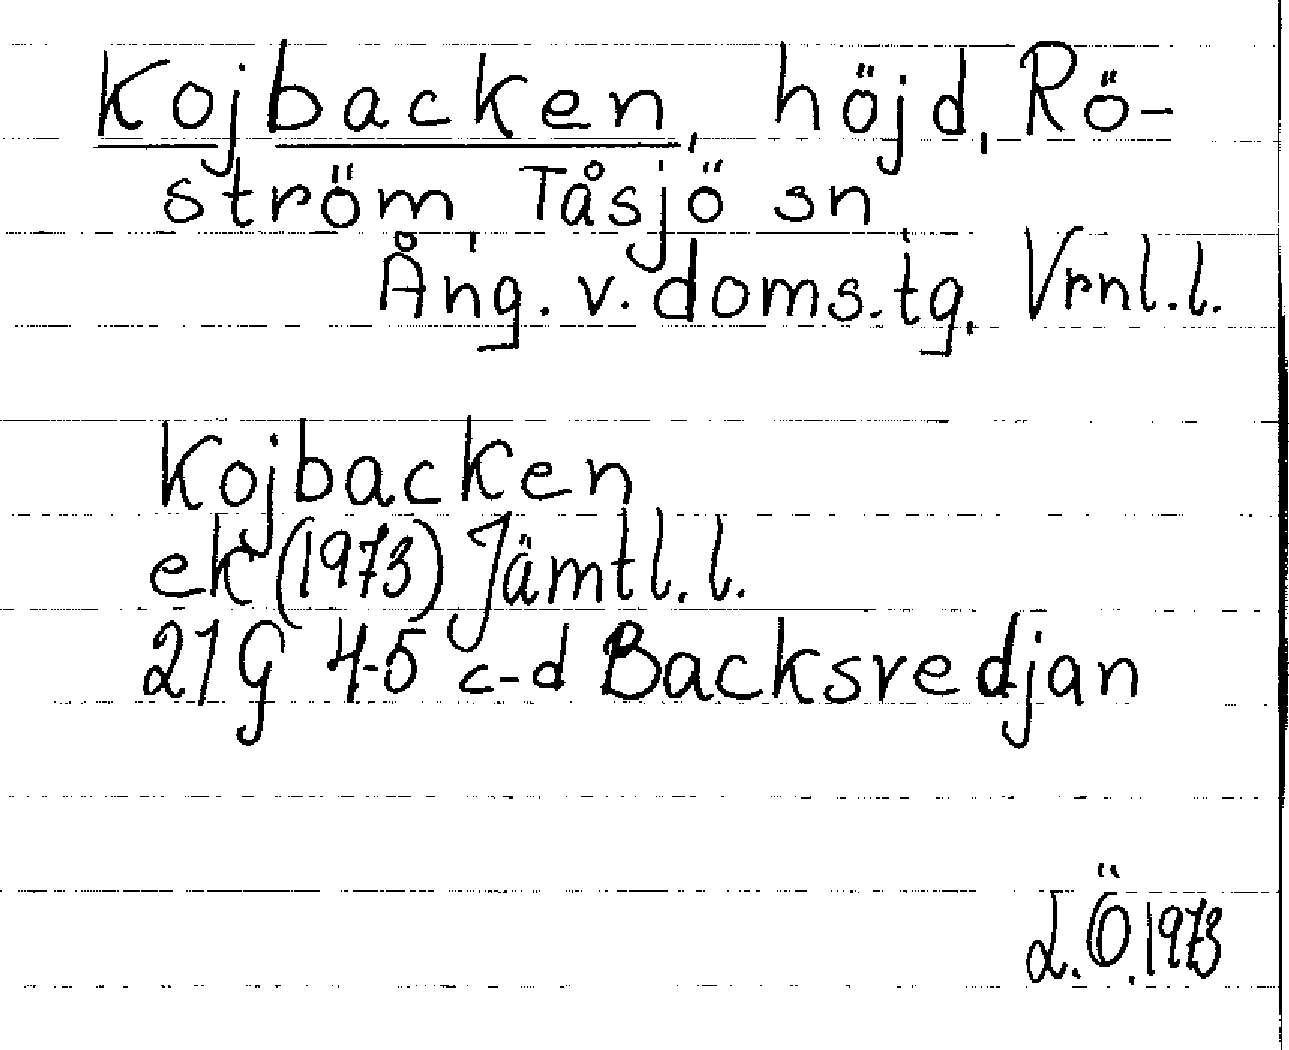 Kojbacken, höjd, Rö-
ström, Tåsjö sn
Ång. v. doms.tg, Vrnl.l.
Kojbacken
ek (1973) Jämtl.l.
21G 4-5 c-d Backsredjan
L.Ö.1973